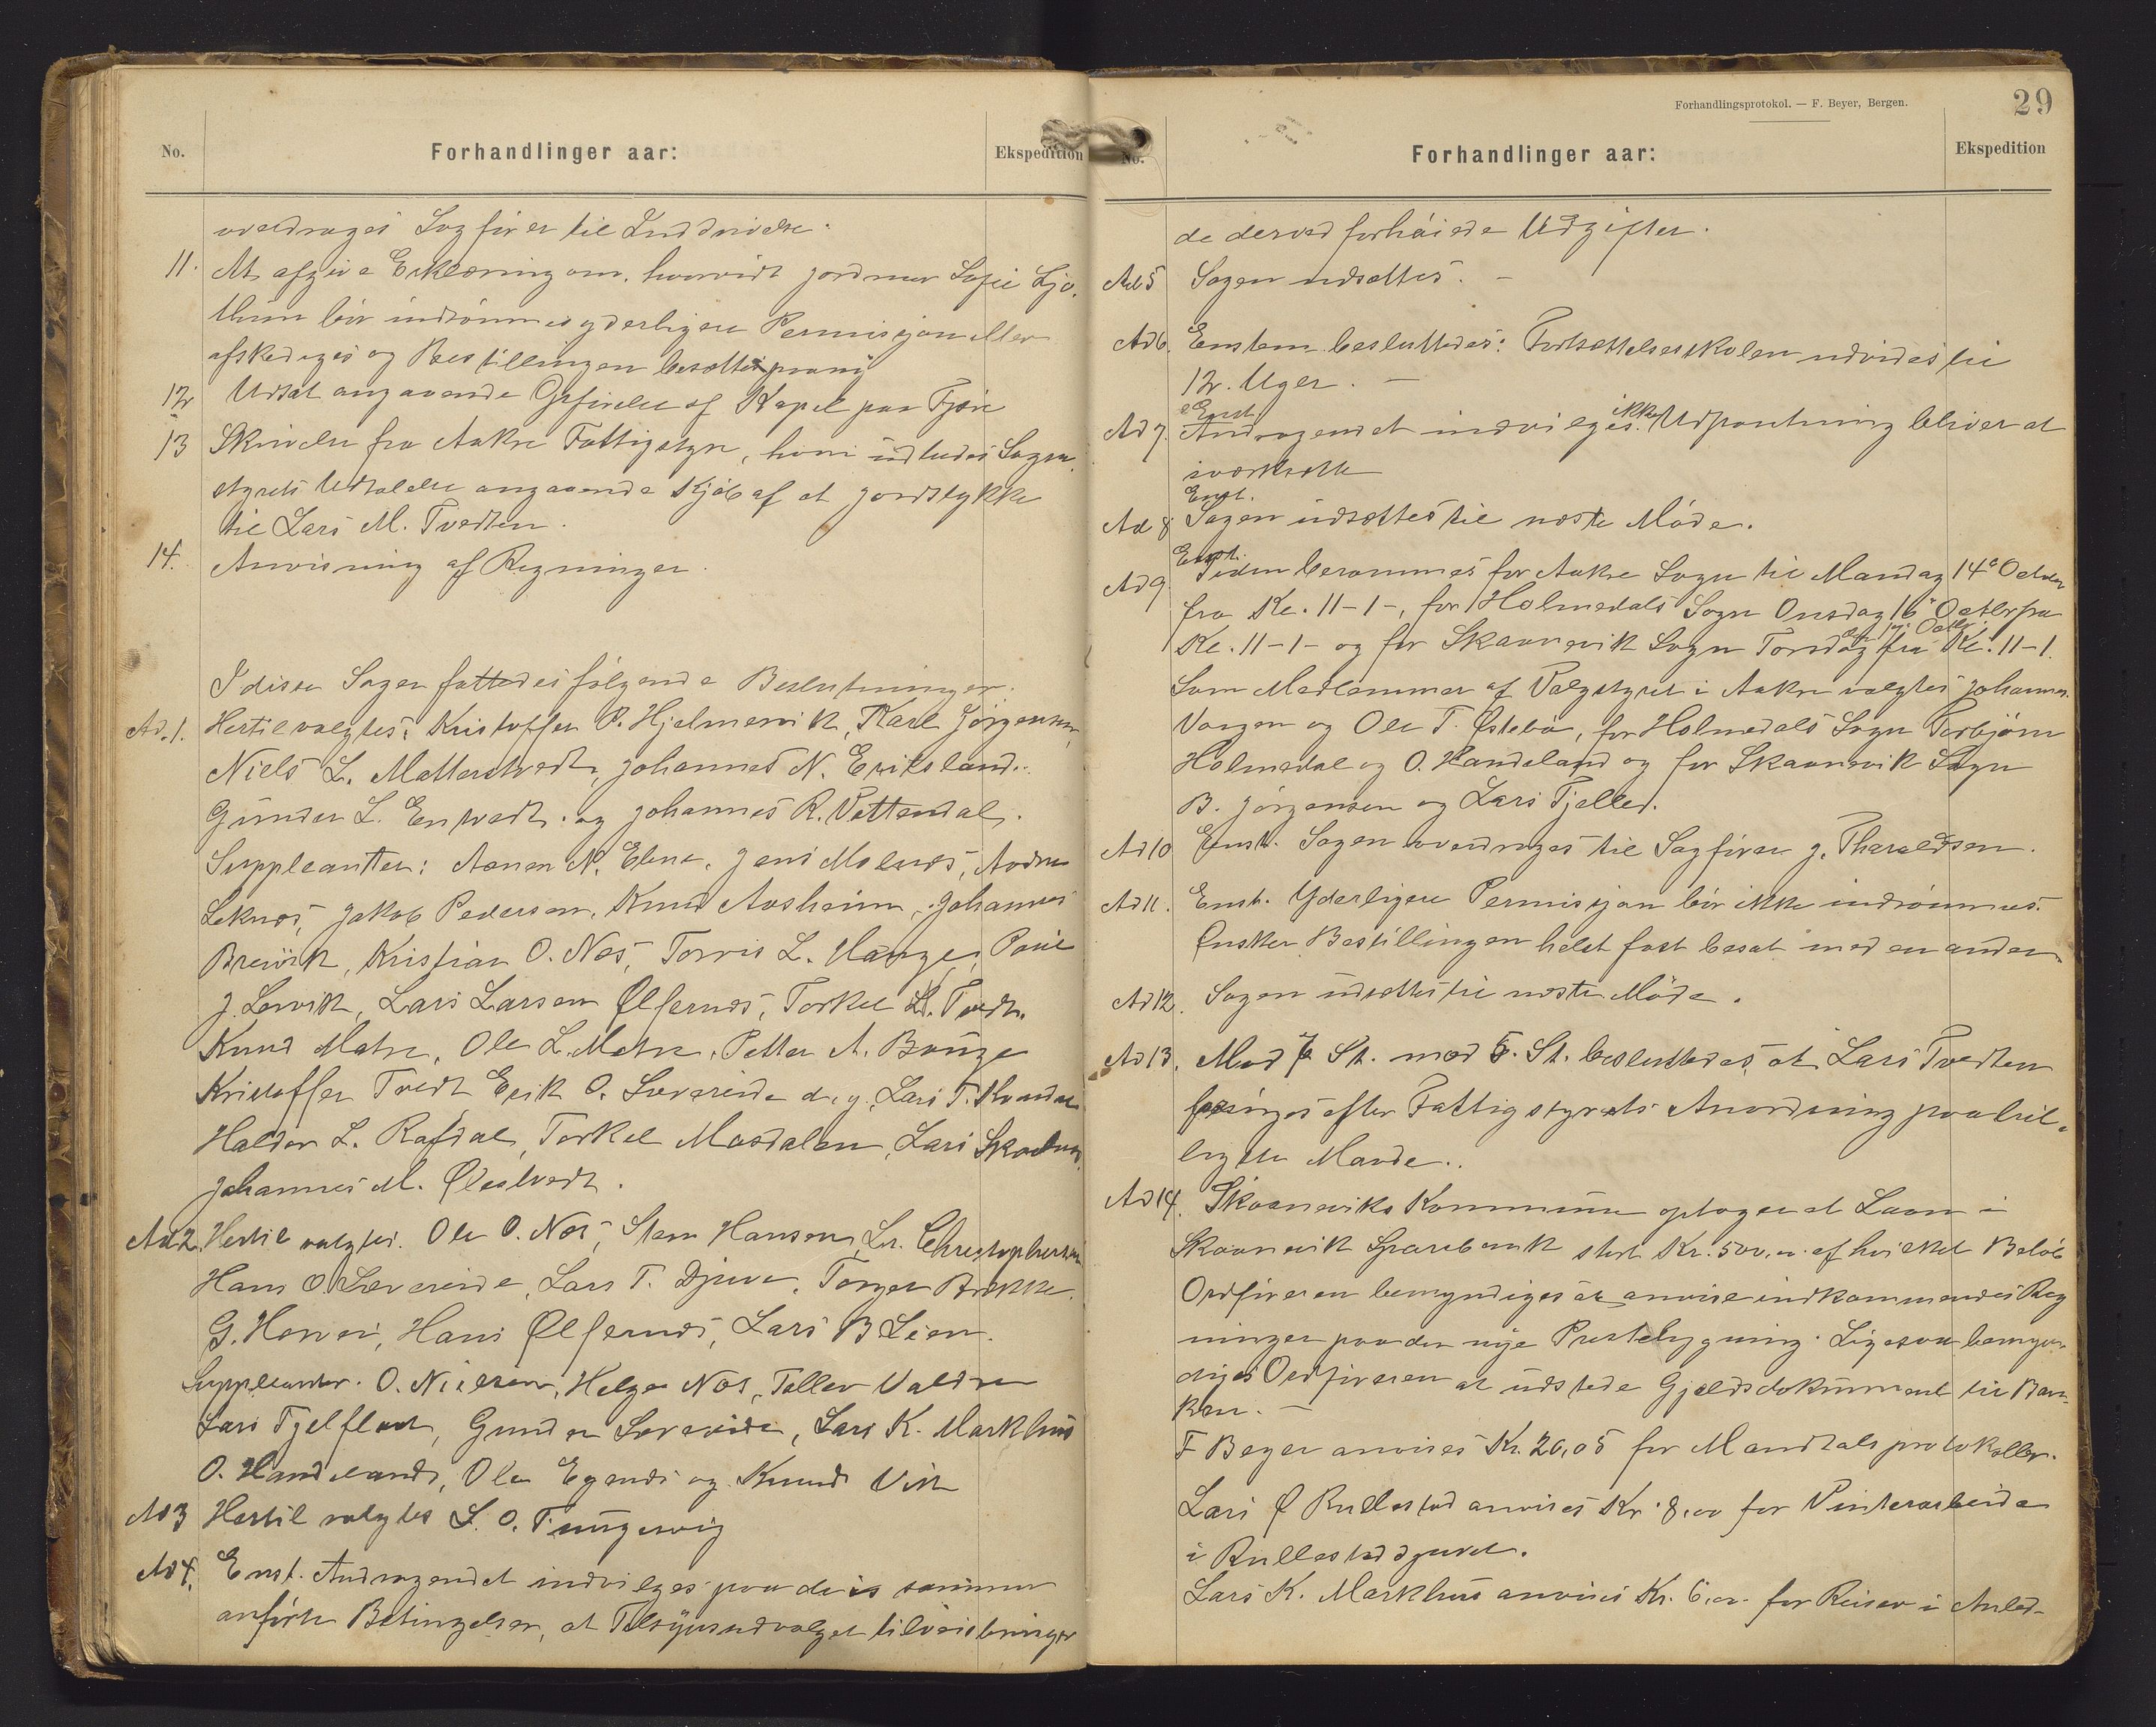 No.
Forhandlinger aar:
Ekspedition
overdrages Sagfører til Inddrivelse.
11. At afgive Erklæring om, hvorvidt Jordmor Sofie Ljo-
thun bør indrømmes yderligere Permisjon eller
afskediges og Bestillingen besættes paany
12 Udsat angaaende Opførelse af Kapel paa Fjære
13 Skrivelse fra Aakre Fattigstyre, hvori udbedes Sogne-
styrets Udtalelse angaaende Kjøb af et Jordstykke
til Lars M. Tvedten.
14. Anvisning af Regninger.
I disse Sager fattedes følgende Beslutninger.
Ad. 1. Hertil valgtes: Kristoffer P. Hjelmervik, Karl Jørgensen,
Niels L. Matterstvedt, Johannes N. Eriksland.
Gunder L. Entvedt. og Johannes R. Vettendal.
Suppleantter: Aanen N. Ebne, Jens Molnes, Andreas
Leknes, Jakob Pedersen, Knud Aasheim, Johannes
Brevik, Kristian O. Næs, Torris L. Hauge, Poul
J. Lervik, Lars Larsen Ølfernæs, Torkel L. Tvedt.
Knud Matre, Ole L. Matre, Petter A. Bauge
Kristoffer Tvedt Erik O. Sævereide d.y. Lars T.
Haldor L. Rafdal, Torkel Mosdalen, Lars
Johannes M. Ølestvedt.
Ad 2. Hertil valgtes. Ole O. Næs, Sten Hansen, Lr. Christophersen
Hans O. Sævereide, Lars T. Djuve, Torger Brekke.
G. Hervei, Hans Ølfernæs, Lars B Lien.
Suppleanter. O. Nielsen, Helge Næs, Tollev Valdre
Lars Fjelflaat, Gunder Sævereide, Lars K. Markhus
O. Handeland, Ole Egenæs og Knud Vik
Ad 3 Hertil valgtes L. O. Tungesvig
Ad 4. Enst. Andragendet indvilges paa de i samme
anførte Betingelser, at Tilsynsudvalget tilveiebringer
Forhandlingsprotokol. — F. Beyer, Bergen.
29
No.
Forhandlinger aar:
Ekspedition
de derved forhøiede Udgifter.
Ad 5 Sagen udsættes. –
Ad 6. Enstem. besluttedes: Fortsættelsesskolen udvides til
12. Uger. –
Enst. ikke
Ad 7. Andragendet indvilges. Udpantning bliver at
iværksætte
Enst.
Ad 8 Sagen udsættes til næste Møde.
Enst.
Ad 9 Tiden berammes for Aakre Sogn til Mandag 14de October
fra Kl. 11-1-, for Holmedals Sogn Onsdag 16 Octbr fra
Kl. 11-1- og for Skaanevik Sogn Torsdag den 17. Octbr. fra Kl. 11-1.
Som Medlemmer af Valgstyret i Aakre valgtes Johannes
Vaagen og Ole T. Østebø, for Holmedals Sogn Torbjørn
Holmedal og O. Handeland og for Skaanevik Sogn
B. Jørgensen og Lars Tjelle.
Ad 10 Enst. Sagen overdrages til Sagfører J. Tharaldsen.
Ad 11. Enst. Yderligere Permisjon bør ikke indrømmes.
Ønsker Bestillingen helst fast besat med en anden.
Ad 12. Sagen udsættes til næste Møde.
Ad 13. Med 7 St. mod 5. St. besluttedes at Lars Tvedten
forsørges efter Fattigstyrets Anordning paa bil-
ligste Maade.
Ad 14. Skaaneviks Kommune optager et Laan i
Skaanevik Sparebank stort Kr. 500,00. af hvilket Beløb
Ordføreren bemyndiges at anvise indkommendes Reg
ninger paa den nye Prestebygning. Ligesaa bemyn-
diges Ordføreren at udstede Gjeldsdokument til Ban-
ken. –
F Beyer anvises Kr. 20,05 for Mandtalsprotokoller.
Lars Ø Rullestad anvises Kr. 8,00 for Vinterarbeide
i Rullestadjuvet.
Lars K. Markhus anvises Kr. 6,00. for Reiser i Anled-